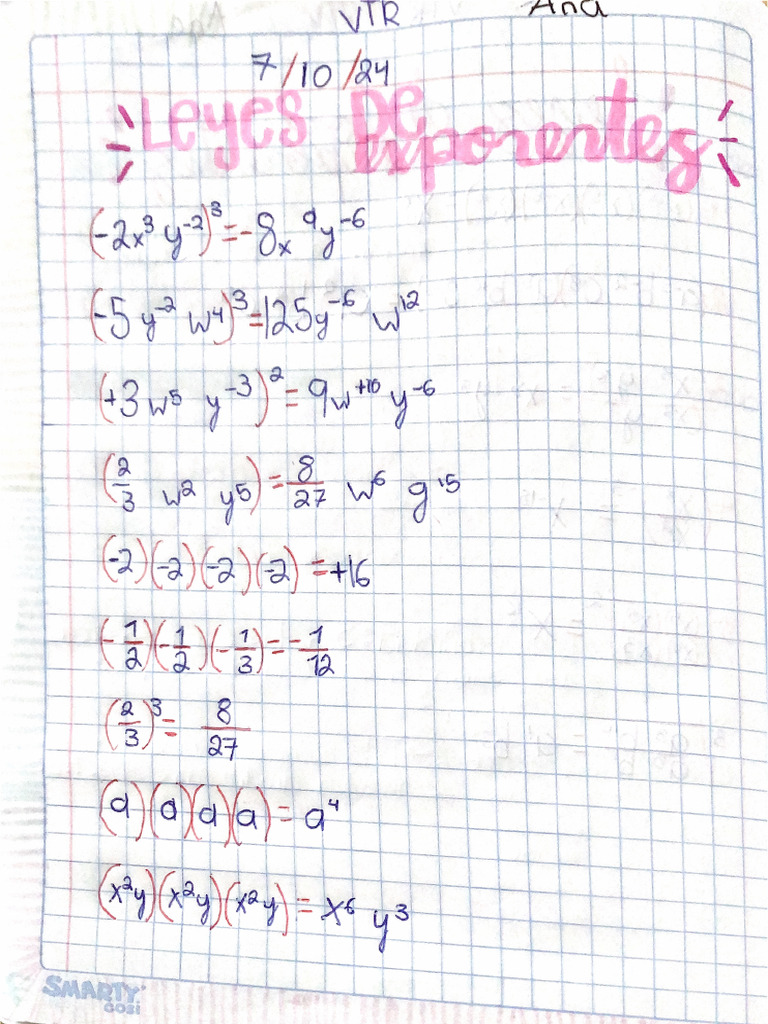 VTR Ana
7/10/24
Leyes De
exponentes
(-2x³ y⁻²)³=-8x⁹y⁻⁶
(-5 y⁻² w⁴)³=125y⁻⁶ w¹²
(+3 w⁵ y⁻³)²= 9w⁺¹⁰ y⁻⁶
(2/3 w² y⁵)=8/27 w⁶ g¹⁵
(-2)(-2)(-2)(-2)=+16
(-1/2)(-1/2)(-1/3)=-1/12
(2/3)³= 8/27
(a)(a)(a)(a)= a⁴
(x²y)(x²y)(x²y)= x⁶ y³
SMARTY
COSI